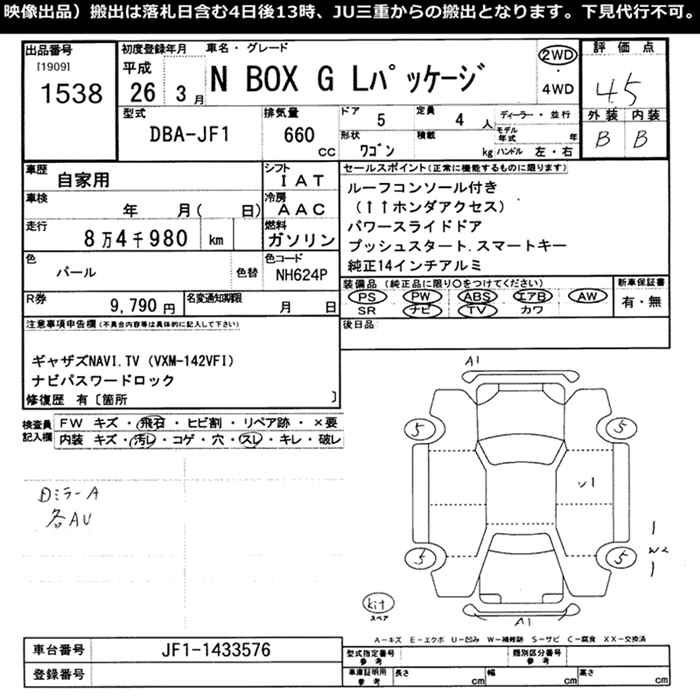 映像出品）搬出は落札日含む4日後13時、JU三重からの搬出となります。下見代行不可。
出品番号
[1909]
1538
初度登録年月
平成
26 3月
車名・グレード
N BOX G Lパッケージ
2WD
・
4WD
評価点
4.5
外装 内装
B B
型式
DBA-JF1
排気量
660 cc
ドア
5
定員
4 人
形状
ワゴン
積載
kg
ディーラー・並行
モデル年式 年
ハンドル 左・右
車歴
自家用
シフト
IAT
車検
年 月( 日)
冷房
AAC
走行
8万4千980 km
燃料
ガソリン
色
パール
色替
色コード
NH624P
R券
9,790 円
名変通知期限
月 日
セールスポイント(正常に機能するものに限ります)
ルーフコンソール付き
（↑↑ホンダアクセス）
パワースライドドア
プッシュスタート.スマートキー
純正14インチアルミ
装備品（純正品に限り○をつけてください）
PS PW ABS エアB AW
SR ナビ TV カワ
新車保証書
有・無
後日品
注意事項申告欄(不具合内容等は具体的に記入して下さい)
ギャザズNAVI.TV (VXM-142VFI)
ナビパスワードロック
修復歴 有〔箇所 〕
検査員記入欄
FW キズ・飛石・ヒビ割・リペア跡・×要
内装 キズ・汚レ・コゲ・穴・スレ・キレ・破レ
DミラーA
各AU
A1
5 5
U1
W2
5 5
kit
スペア
A1
A－キズ E－エクボ U－凹み W－補修跡 S－サビ C－腐食 XX－交換済
車台番号
JF1-1433576
登録番号
型式指定番号
参考
類別区分番号
参考
車庫証明用
参考
長さ cm
幅 cm
高さ cm